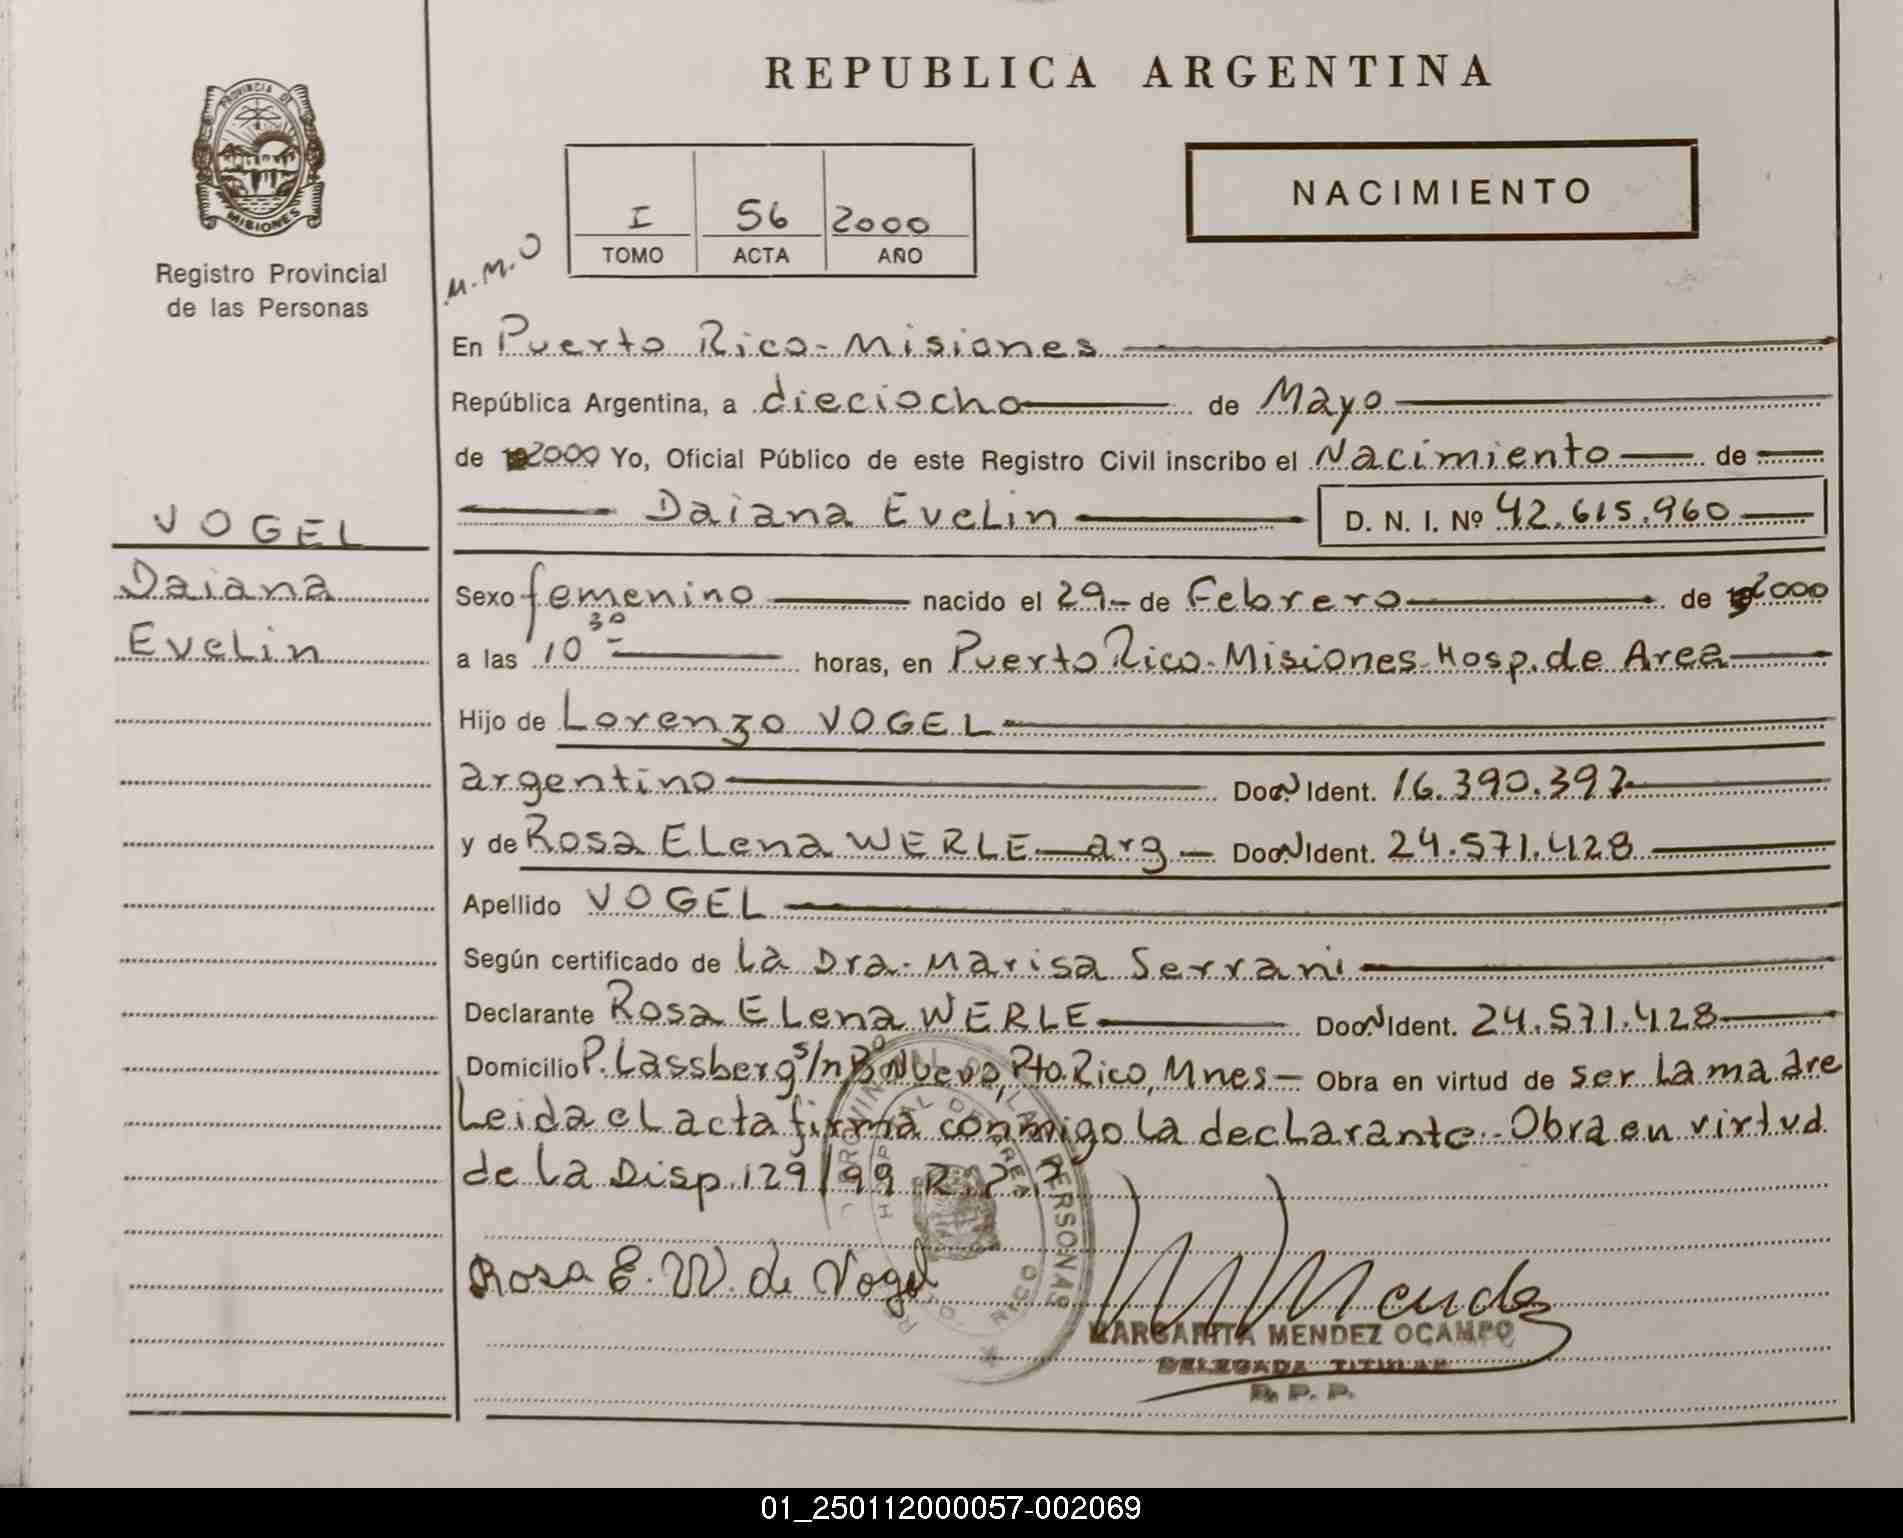 REPUBLICA ARGENTINA
PROVINCIA DE
MISIONES
Registro Provincial
de las Personas
NACIMIENTO
I 56 2000
TOMO ACTA AÑO
M.M.O
En Puerto Rico - Misiones
República Argentina, a dieciocho de Mayo
de 2000 Yo, Oficial Público de este Registro Civil inscribo el Nacimiento de
Daiana Evelin D. N. I. Nº 42.615.960
VOGEL
Daiana
Evelin
Sexo femenino nacido el 29 - de Febrero de 2000
a las 10 30 horas, en Puerto Rico - Misiones - Hosp. de Area
Hijo de Lorenzo VOGEL
argentino Doc. N Ident. 16.390.397
y de Rosa Elena WERLE - arg - Doc. N Ident. 24.571.428
Apellido VOGEL
Según certificado de la Dra. Marisa Serrani
Declarante Rosa Elena WERLE Doc. N Ident. 24.571.428
Domicilio P. Lassberg s/n Bº Nuevo, Pto. Rico, Mnes - Obra en virtud de ser la madre
Leida el acta firma conmigo la declarante - Obra en virtud
de la Disp. 129/99 R.P.P.
Rosa E. W. de Vogel
MARGARITA MENDEZ OCAMPO
DELEGADA TITULAR
R. P. P.
01_250112000057-002069